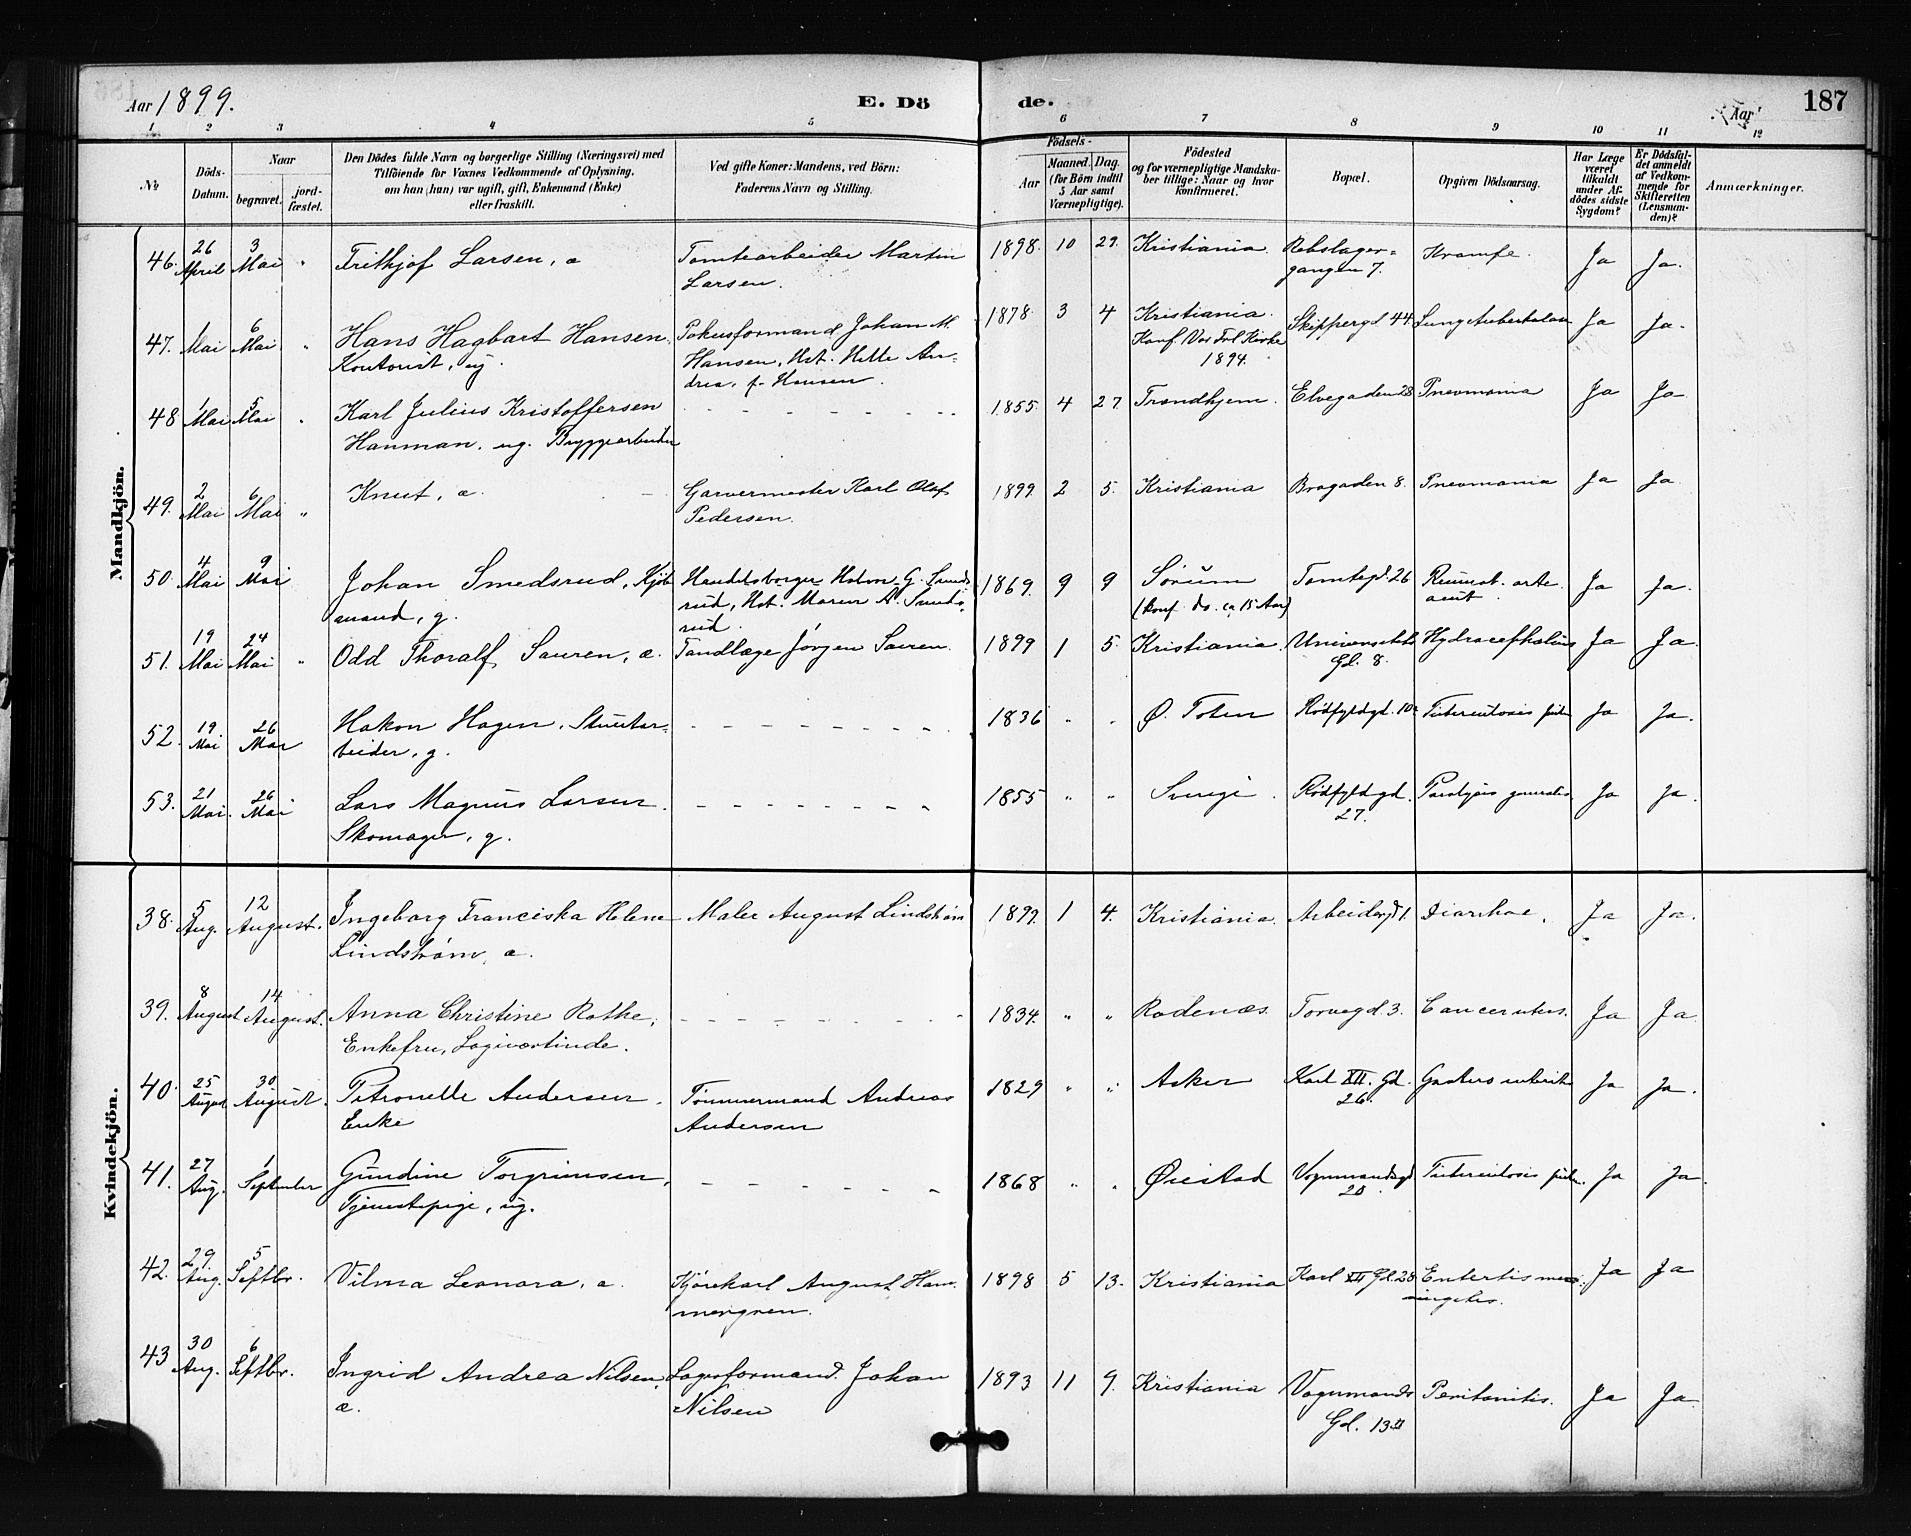 Aar 1899. E. Dö de. Aar 187
1 2 3 4 5 6 7 8 9 10 11 12
No Döds-Datum. Naar begravet. jord-fæstet. Den Dödes fulde Navn og borgerlige Stilling (Næringsvei) med Tilföiende for Voxnes Vedkommende af Oplysning, om han (hun) var ugift, gift, Enkemand (Enke) eller fraskilt. Ved gifte Koner: Mandens, ved Börn: Faderens Navn og Stilling. Födsels- Aar Maaned. Dag. (for Börn indtil 5 Aar samt Værnepligtige). Födested og for værnepligtige Mandskaber tillige: Naar og hvor konfirmeret. Bopæl. Opgiven Dödsaarsag. Har Læge været tilkaldt under Afdödes sidste Sygdom? Er Dödsfaldet anmeldt af Vedkommende for Skifteretten (Lensmanden)? Anmærkninger.
Mandkjön.
46. 26 April 3 Mai " Frithjof Larsen, æ Tomtearbeider Martin 1898. 10 29. Kristiania. Rebslager= Krampe. Ja Ja.
Larsen. gangen 7.
47. 1 Mai 6 Mai " Hans Hagbart Hansen. Johan M. 1878. 3 4 Kristiania. Skippergd 44. Ja Ja.
Kontorist, ug. Hansen, Hst. An- Konf Vor Frl Kirke
drea, f. Hansen. 1894.
48 1 Mai 5 Mai " Karl Julius Kristoffersen - - - - - - - - 1855. 4 27. Trondhjem. Elvegaden 28 Pneumonia Ja Ja
Hanman, ug. Bryggearbeider
49. 2 Mai 6 Mai " Knut, æ. Garvermester Karl Olaf 1899. 2 5. Kristiania Brogaden 8. Pneumonia Ja Ja
Pedersen.
50. 4 Mai 9 Mai Johan Smedsrud, Kjöb Handelsborger G. Smeds 1869. 9 9 Sørum Tomtegd. 26 Reumat. arte Ja Ja.
mand, g. rud, Hst. Maren A. Smeds, (konf. do. ca 15 Aar) acut.
rud.
51. 19 Mai 24 Mai " Odd Thoralf Sauren, æ. Tandlæge Jørgen Sauren 1899 1 5. Kristiania. Universitets Hydrocefhalus Ja Ja.
Gd. 8.
52. 19 Mai 26 Mai Hakon Hagen, Stuetar- - - - - - - - - 1836 " " Ø. Toten Rødfyldgd. 10 Tuberculosis Ja Ja.
beider, g.
53. 21 Mai. 26 Mai Lars Magnus Larsen. - - - - - - - 1855 " " Sverige. Rødfyldgd. Paralysis generalis Ja Ja.
Skomager, g. 27.
Kvindekjön.
38. 5 Aug. 12 August. Ingeborg Franciska Helene Maler August Lindstrøm 1899. 1 4. Kristiania. Arbeidergd 1. Diarrhoe. Ja Ja.
Lindstrøm, æ.
39. 8 August 14 August. Anna Christine Rothe, - - - - - - - - 1834. " " Rodenæs. Torvegd. 3. Cancer uteri. Ja Ja
Enkefru, Logivertinde.
40. 25 August 30 August. Petronelle Andersen. Tømmermand Andreas 1829 " " Asker Karl XII. Gd. Gastero enterit Ja Ja.
Enke Andersen 26.
41. 27 Aug. 1 September Gundine Torgrimsen, - - - - - - - 1868 " " Øiestad Vognmandsgd Tuberculosis Ja Ja.
Tjenestepige, ug. 28.
42. 29 Aug. 5 Septbr. Vilma Leonora, æ. Kjørekarl August Ham- 1898 5 13. Kristiania Karl XII Gd. 28 Entertis men- Ja Ja
mergren. ingitis.
43 30 Aug. 6 Septbr. Ingrid Andrea Nilsen, Lagerformand Johan 1893 11 9. Kristiania Vognmands Peritonitis. Ja Ja.
æ. Nilsen Gd. 13 II